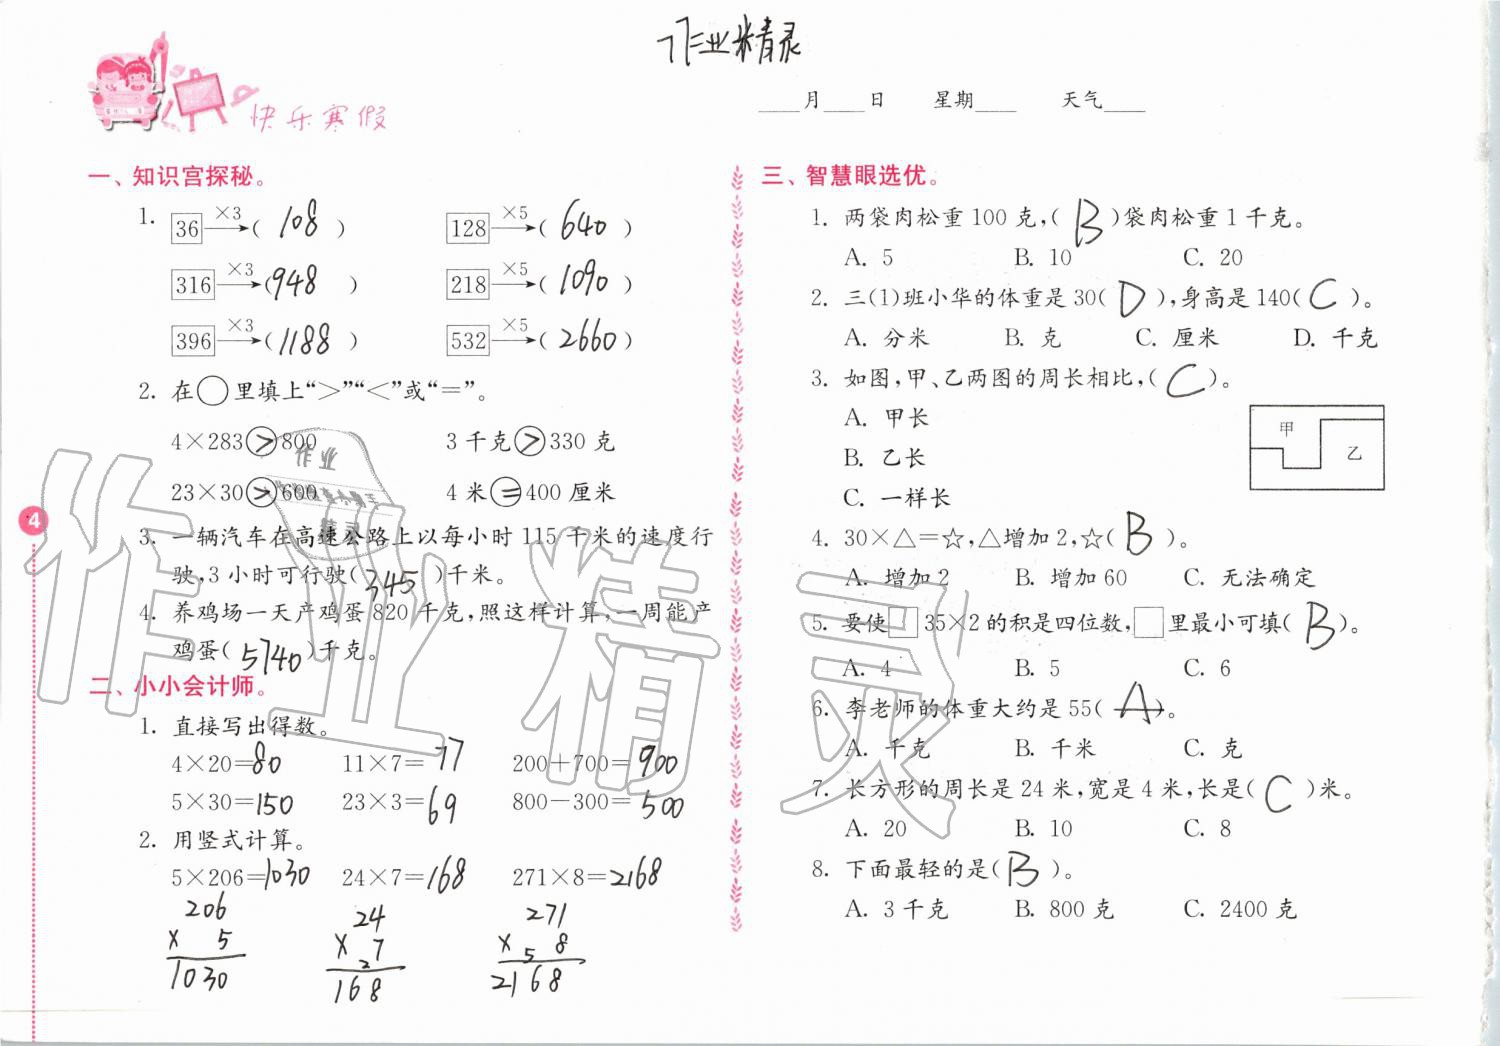 作业精灵
快乐寒假
____月____日 星期____ 天气____
一、知识宫探秘。
1. 36 ×3→( 108 ) 128 ×5→( 640 )
316 ×3→( 948 ) 218 ×5→( 1090 )
396 ×3→( 1188 ) 532 ×5→( 2660 )
2. 在○里填上“>”“<”或“=”。
4×283>800 3千克>330克
23×30>600 4米=400厘米
3. 一辆汽车在高速公路上以每小时115千米的速度行
驶,3小时可行驶( 345 )千米。
4. 养鸡场一天产鸡蛋820千克,照这样计算,一周能产
鸡蛋( 5740 )千克。
二、小小会计师。
1. 直接写出得数。
4×20=80 11×7=77 200+700=900
5×30=150 23×3=69 800-300=500
2. 用竖式计算。
5×206=1030 24×7=168 271×8=2168
206 24 271
× 5 × 2 7 × 5 8
1030 168 2168
4
三、智慧眼选优。
1. 两袋肉松重100克,( B )袋肉松重1千克。
A. 5 B. 10 C. 20
2. 三(1)班小华的体重是30( D ),身高是140( C )。
A. 分米 B. 克 C. 厘米 D. 千克
3. 如图,甲、乙两图的周长相比,( C )。
A. 甲长
B. 乙长
C. 一样长
甲
乙
4. 30×△=☆,△增加2,☆( B )。
A. 增加2 B. 增加60 C. 无法确定
5. 要使□35×2的积是四位数,□里最小可填( B )。
A. 4 B. 5 C. 6
6. 李老师的体重大约是55( A )。
A. 千克 B. 千米 C. 克
7. 长方形的周长是24米,宽是4米,长是( C )米。
A. 20 B. 10 C. 8
8. 下面最轻的是( B )。
A. 3千克 B. 800克 C. 2400克
作业精灵
作业